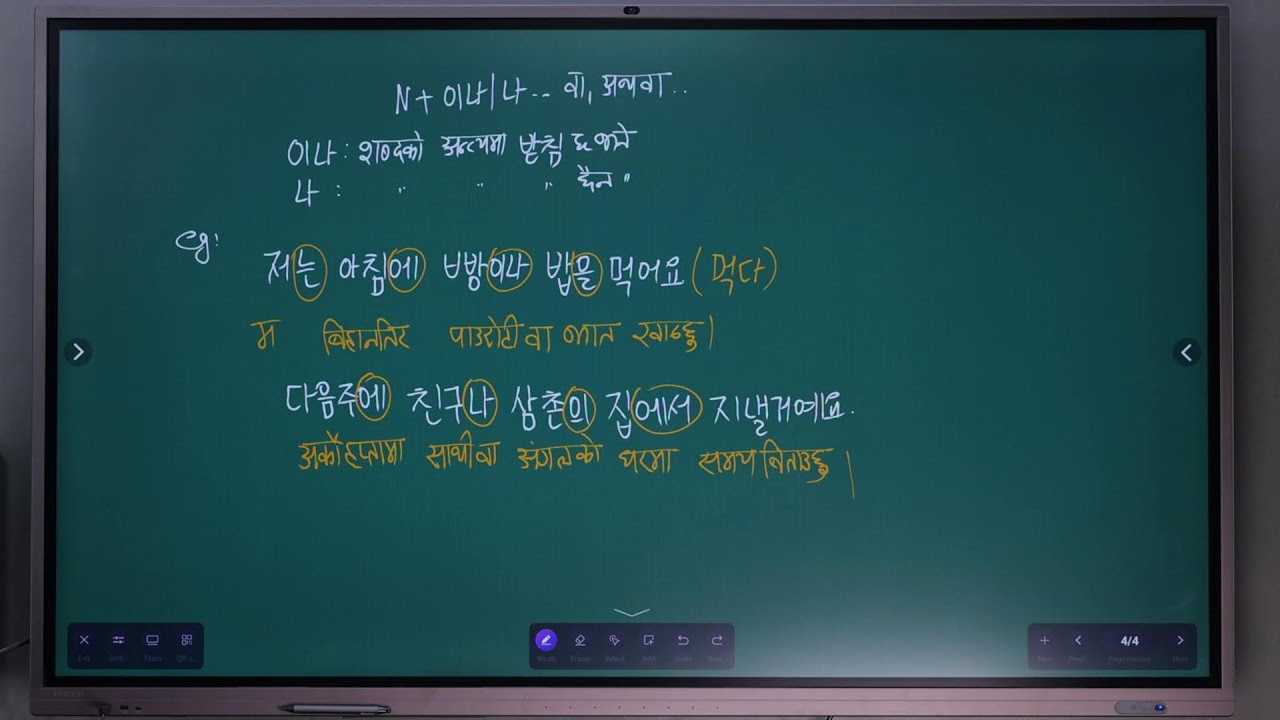 N + 이나/나... वा, अथवा..
이나 : शब्दको अन्त्यमा 받침 छ भने
나 : " " " छैन "
eg:
저는 아침에 빵이나 밥을 먹어요 (먹다)
म बिहानतिर पाउरोटी वा भात खान्छु।
다음주에 친구나 삼촌의 집에서 지낼거예요.
अर्को हप्तामा साथी वा अंकलको घरमा समय बिताउछु।
Exit
Eraser
Select
Add
Undo
4/4
Page number
Next